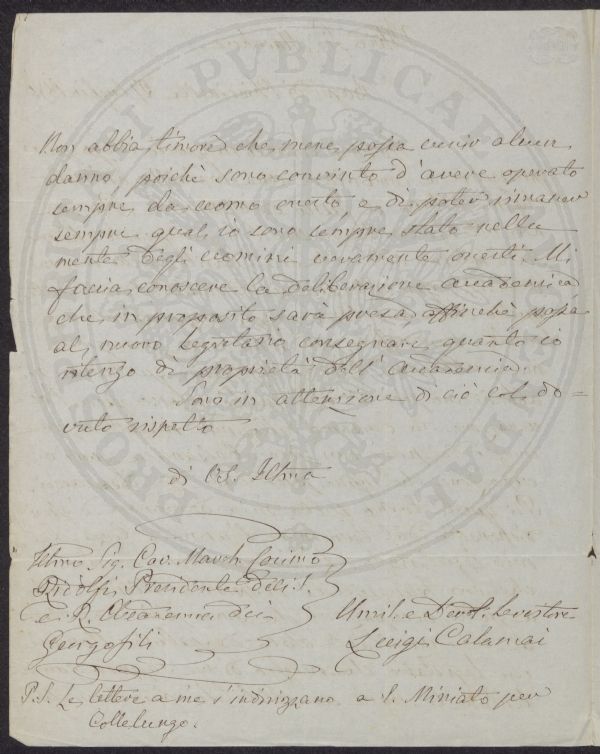 Non abbia timore che mene possa venir alcun
danno, poichè sono convinto d'avere operato
sempre da uomo onesto e di poter rimaner
sempre qual io sono sempre stato nella
mente degli uomini veramente onesti. Mi
faccia conoscere la deliberazione accademica
che in proposito sarà presa, affinchè possa
al nuovo Segretario consegnare quanto io
ritengo di proprietà dell' Accademia.
Sono in attenzione di ciò col do=
vuto rispetto
di VS. Illma
Illmo Sig. Cav. March. Cosimo
Ridolfi Presidente dell' I.
e R. Accademia dei
Georgofili
Umil. e Dev. Servitore
Luigi Calamai
P.S. Le lettere a me s'indirizzano a S. Miniato per
Collelungo.
PUBLICAE
PROSPERITATI